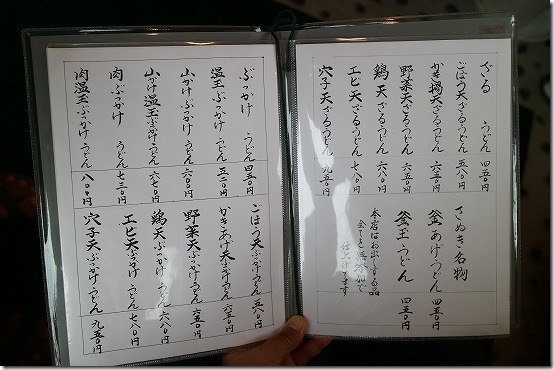 ざる うどん 四五〇円
ごぼう天ざるうどん 五八〇円
かき揚天ざるうどん 六五〇円
野菜天ざるうどん 六五〇円
鶏天ざるうどん 六八〇円
エビ天ざるうどん 七八〇円
穴子天ざるうどん 九五〇円
さぬき名物
釜あげうどん 四五〇円
釜玉うどん 四五〇円
本店はお出しする品
仕上げてます
ぶっかけ うどん 四五〇円
温玉ぶっかけ うどん 五二〇円
山かけぶっかけ うどん 六〇〇円
山かけ温玉ぶっかけ うどん 六七〇円
肉ぶっかけ うどん 七三〇円
肉温玉ぶっかけ うどん 八〇〇円
ごぼう天ぶっかけうどん 五八〇円
かきあげ天ぶっかけうどん 六五〇円
野菜天ぶっかけうどん 六五〇円
鶏天ぶっかけ うどん 六八〇円
エビ天ぶっかけ うどん 七八〇円
穴子天ぶっかけ うどん 九五〇円